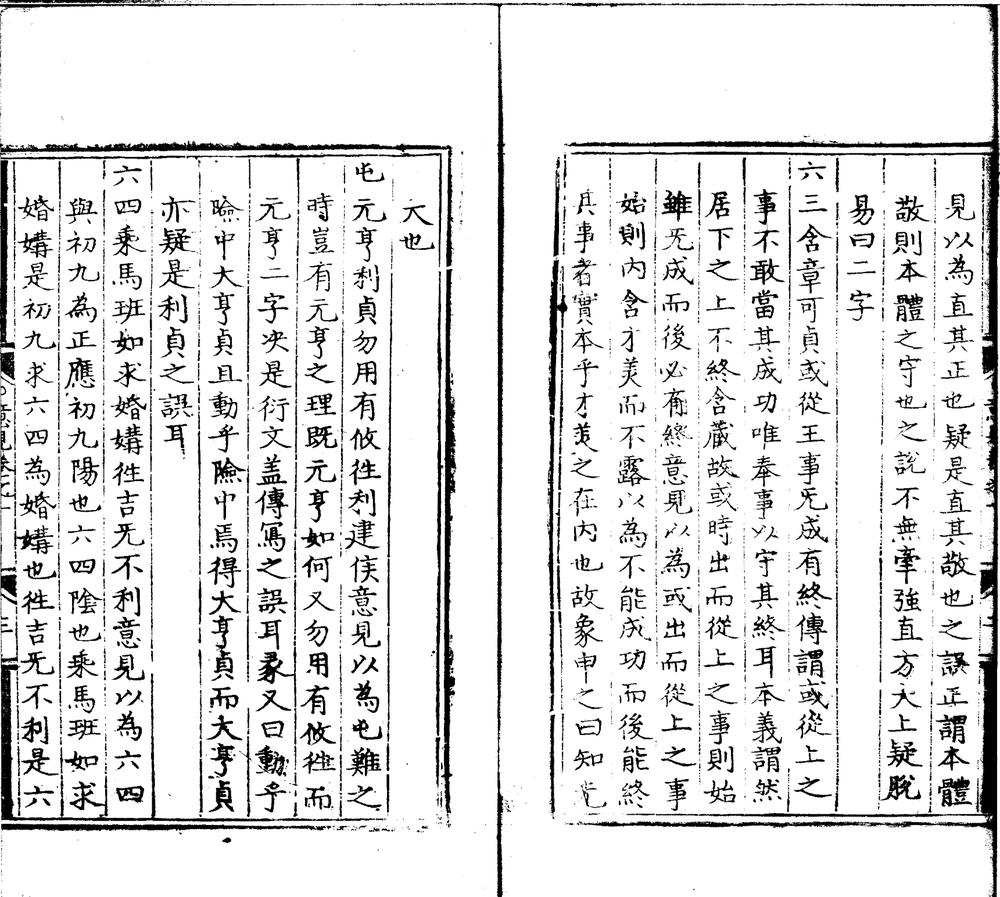 見以為直其正也疑是直其敬也之誤正謂本體
敬則本體之守也之說不無牽強直方大上疑脫
易曰二字
六三含章可貞或從王事旡成有終傳謂或從上之
事不敢當其成功唯奉事以守其終耳本義謂然
居下之上不終含藏故或時出而從上之事則始
雖旡成而後必有終意見以為或出而從上之事
始則內含才美而不露以為不能成功而後能終
其事者實本乎才美之在內也故象申之曰知光
大也
屯元亨利貞勿用有攸徃利建侯意見以為屯難之
時豈有元亨之理既元亨如何又勿用有攸徃而
元亨二字决是衍文盖傳寫之誤耳彖又曰動乎
險中大亨貞且動乎險中焉得大亨貞而大亨貞
亦疑是利貞之誤耳
六四乘馬班如求婚媾徃吉旡不利意見以為六四
與初九為正應初九陽也六四陰也乘馬班如求
婚媾是初九求六四為婚媾也徃吉旡不利是六
意見卷之一 三